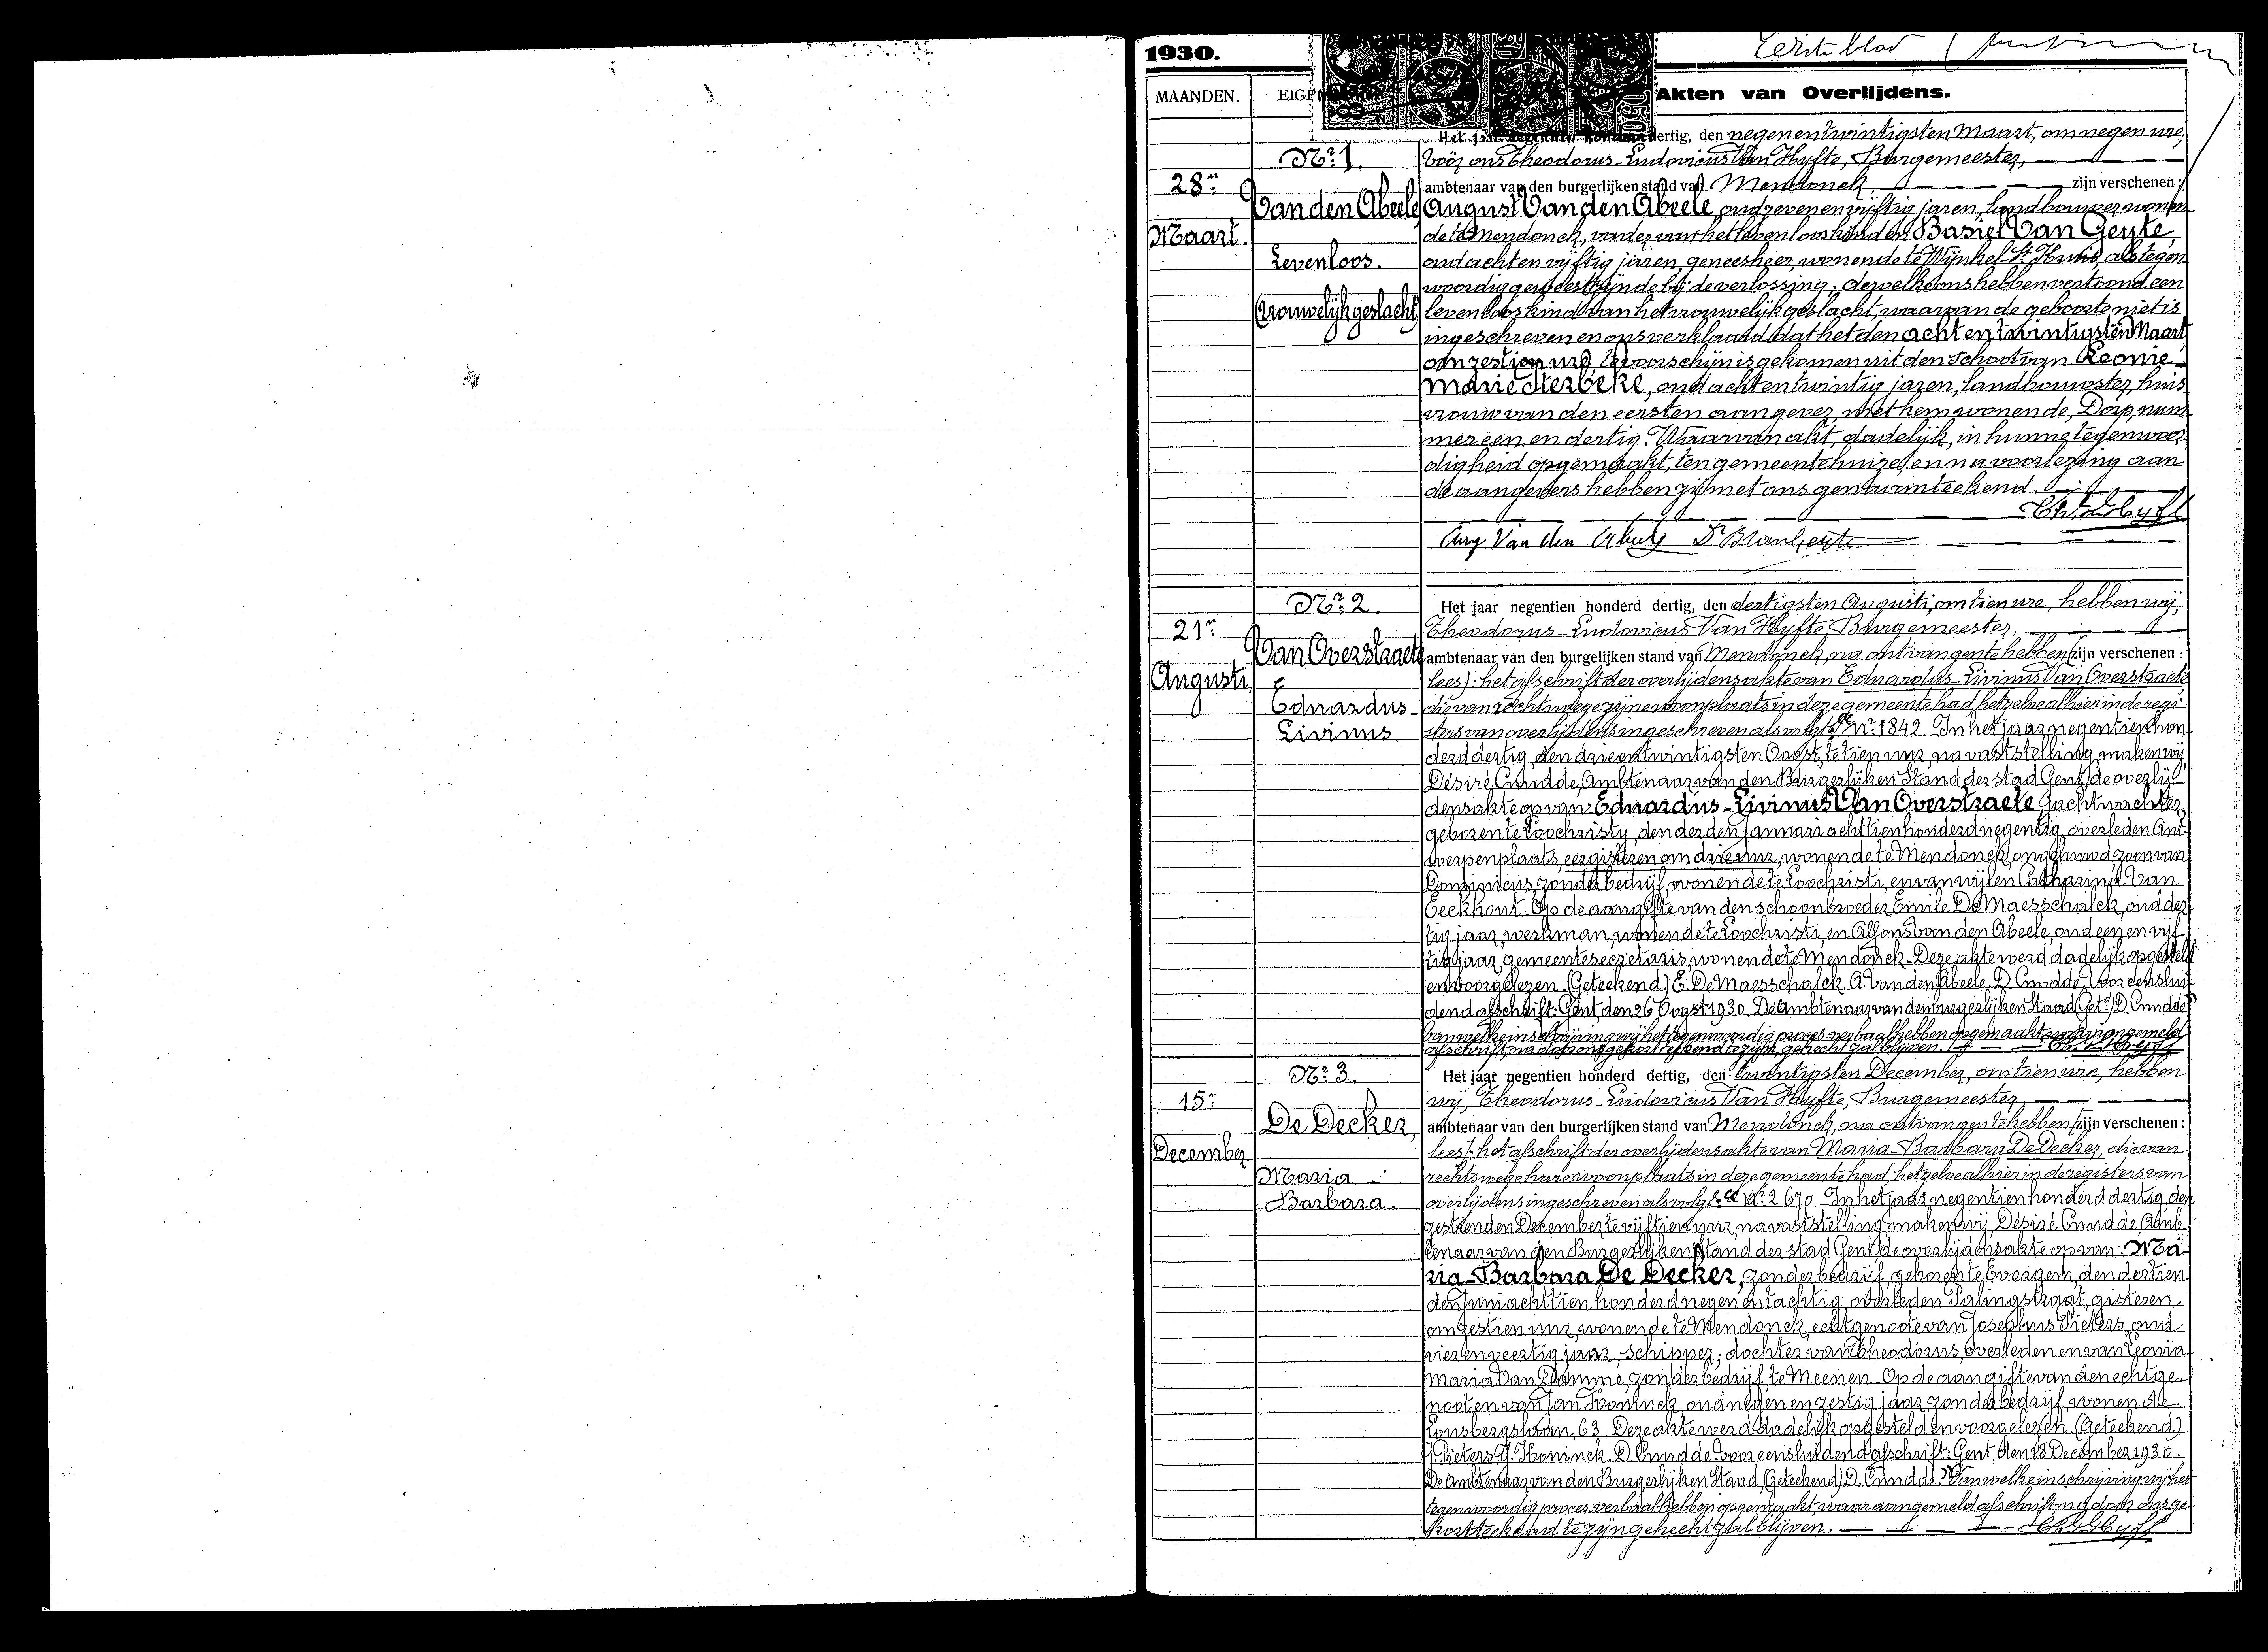 1930.
Eerste blad
MAANDEN.
Akten van Overlijdens.
Nr. 1.
28n
Maart.
Van den Abeele
Levenloos.
(vrouwelijk geslacht)
dertig, den negenentwintigsten Maart, om negen ure,
voor ons Theodorus-Ludovicus Van Hyfte, Burgemeester,
ambtenaar van den burgerlijken stand van Mendonck zijn verschenen :
August Van den Abeele, oud zevenenvijftig jaren, landbouwer wonen-
de te Mendonck, vader van het levenloos kind en Basiel Van Geyte
oud achtenvijftig jaren, geneesheer, wonende te Wynkel St. Kruis, als tegen-
woordig geweest zijnde bij de verlossing; dewelke ons hebben vertoond een
levenloos kind van het vrouwelijk geslacht, waarvan de geboorte niet is
ingeschreven en ons verklaard dat het den achtentwintigsten Maart
om zestien ure, te voorschijn is gekomen uit den schoot van Leonie
Marie Sterbeke, oud achtentwintig jaren, landbouwster, huis-
vrouw van den eersten aangever, met hem wonende, Dorp, num-
mer een en dertig. Waarvan akt, dadelijk, in hunne tegenwoor-
digheid opgemaakt, ten gemeentehuize, en na voorlezing aan
de aangevers hebben zij met ons genaamteekend.
Aug Van den Abeele Dr B Van Geyte
Nr. 2.
21n
Augusti
Van Overstraete
Eduardus
Livinus
Het jaar negentien honderd dertig, den dertigsten Augusti, om tien ure, hebben wij,
Theodorus-Ludovicus Van Hyfte Burgemeester,
ambtenaar van den burgelijken stand van Mendonck, na ontvangen te hebben (zijn verschenen :
lees): het afschrift der overlijdensakte van Eduardus-Livinus Van Overstraete
die van rechtswege zijne woonplaats in deze gemeente had, hetzelve alhier in de regi-
sters van overlijdens ingeschreven als volgt: Nr. 1842 In het jaar negentien hon-
derd dertig, den drieentwintigsten Oogst, te tien uur, na vaststelling, maken wij
Désiré Cnudde, Ambtenaar van den Burgerlijken Stand der stad Gent, de overlij-
densakte op van: Eduardus-Livinus Van Overstraete, nachtwachter,
geboren te Loochristy, den derden Januari achttienhonderd negentig, overleden Ant-
werpenplaats, eergisteren om drie uur, wonende te Mendonck, ongehuwd, zoon van
Dominicus, zonder bedrijf, wonende te Loochristi, en van wijlen Catharina Van
Eeckhout. Op de aangifte van den schoonbroeder Emile De Maesschalck, oud der-
tig jaar, werkman, wonende te Loochristi, en Alfons Van den Abeele, oud een en vijf-
tig jaar, gemeentesecretaris, wonende te Mendonck. Deze akte werd dadelijk opgesteld
en voorgelezen. (Geteekend) E. De Maesschalck. A. Van den Abeele. D. Cnudde. Voor eenslui-
dend afschrift: Gent, den 26 Oogst 1930. De Ambtenaar van den burgerlijken Stand (Getd) D. Cnudde
Van welke inschrijving wij het tegenwoordig proces-verbaal hebben opgemaakt, waaraan gemeld
afschrift, na door ons gekortteekend te zijn, gehecht zal blijven.
Nr. 3.
15n
December
De Decker,
Maria
Barbara.
Het jaar negentien honderd dertig, den twintigsten December, om tien ure, hebben
wij, Theodorus Ludovicus Van Hyfte, Burgemeester,
ambtenaar van den burgerlijken stand van Mendonck, na ontvangen te hebben (zijn verschenen :
lees): het afschrift der overlijdensakte van Maria-Barbara De Decker, die van
rechtswege hare woonplaats in deze gemeente had, hetzelve alhier in de registers van
overlijdens ingeschreven als volgt: Nr. 2670 In het jaar negentien honderd dertig, den
zestienden December te vijftien uur, na vaststelling, maken wij, Désiré Cnudde, Amb-
tenaar van den Burgerlijken Stand der stad Gent, de overlijdensakte op van: Ma-
ria-Barbara De Decker, zonder bedrijf, geboren te Evergem, den dertien-
den Juni achttien honderd negen en tachtig, overleden Palingstraat, gisteren
om zestien uur, wonende te Mendonck, echtgenoote van Josephus Pieters, oud
vierenveertig jaar, schipper; dochter van Theodorus, overleden en van Leonia-
Maria Van Damme, zonder bedrijf, te Meenen. Op de aangifte van den echtge-
noot en van Jan Honinck, oud negen en zestig jaar, zonder bedrijf, wonende
63. Deze akte werd dadelijk opgesteld en voorgelezen. (Geteekend)
J. Pieters. J. Honinck. D. Cnudde. Voor eensluidend afschrift: Gent, den 18 December 1930.
De Ambtenaar van den Burgerlijken Stand, (Geteekend) D. Cnudde. Van welke inschrijving wij het
tegenwoordig proces-verbaal hebben opgemaakt, waaraan gemeld afschrift, na door ons ge-
kortteekend te zijn gehecht zal blijven.